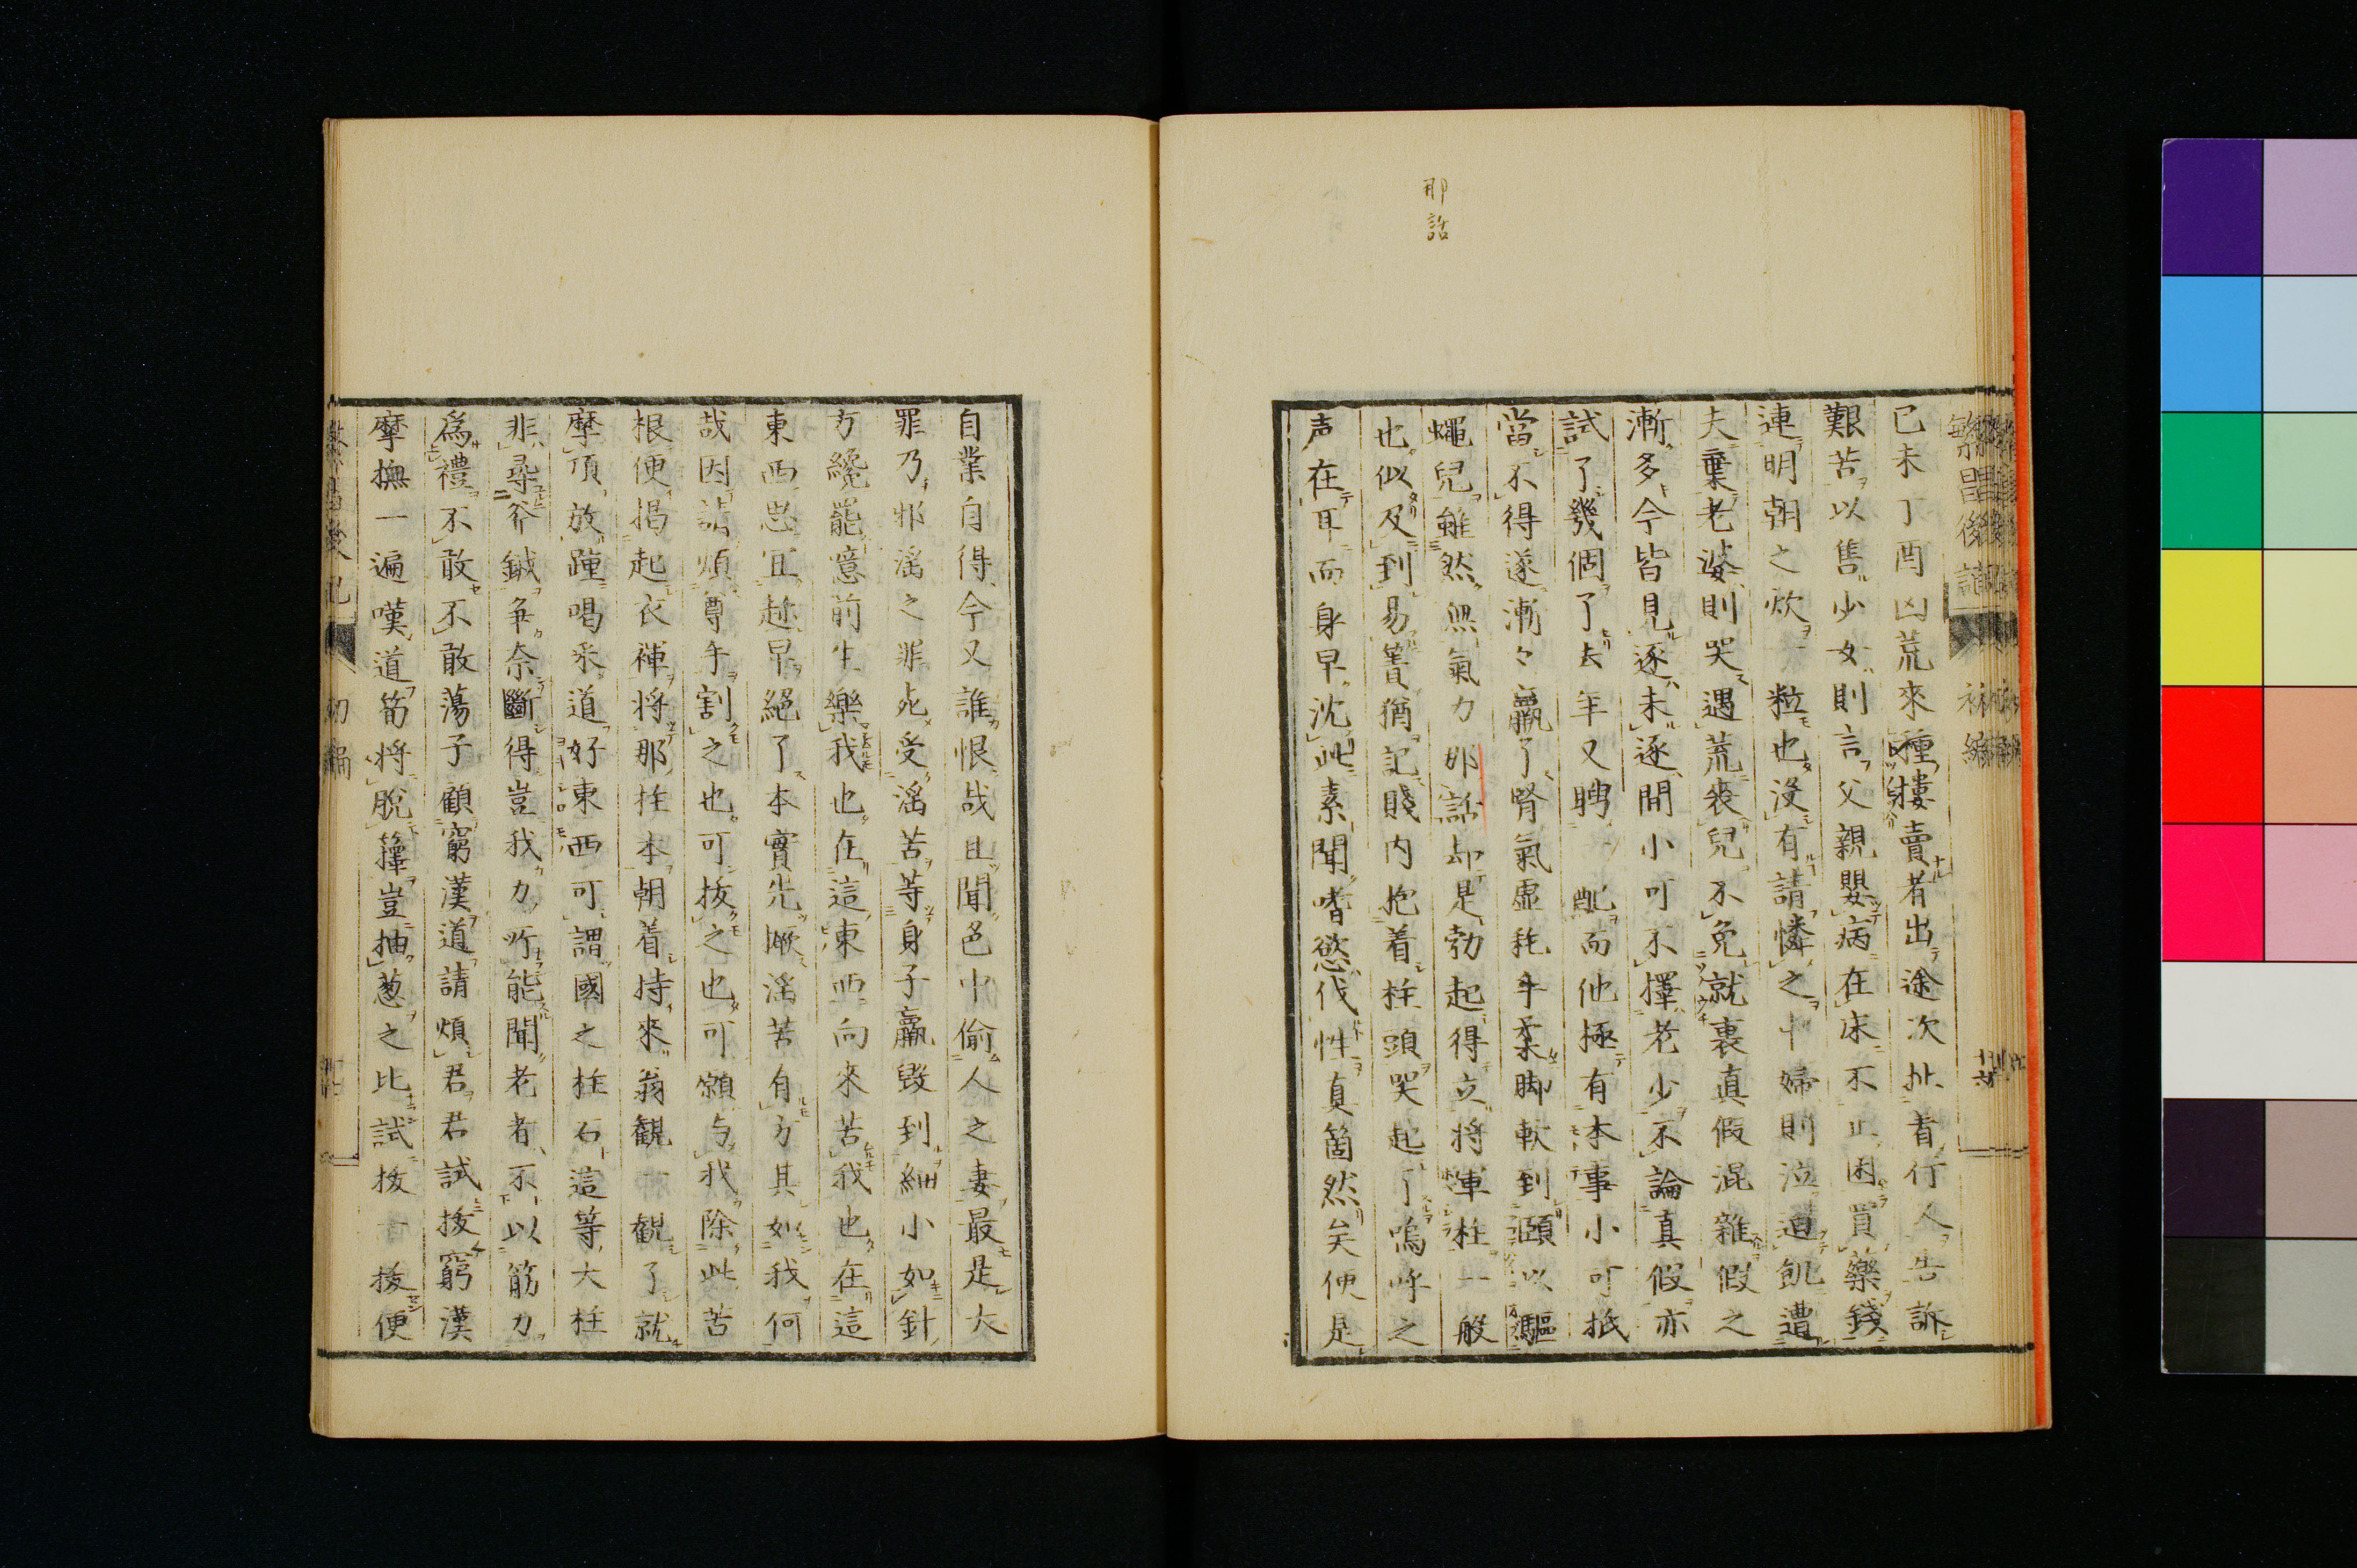 那話
已未丁酉凶荒來種摟賣者出途次扯着行人告訴
艱苦以售少女則言父親嬰病在床不止困買藥錢
連明朝之炊一粒也没有請憐之中婦則泣迫飢遭
夫棄老婆則哭遇荒喪兒不免就裏真假混雜假之
漸多今皆見逐未逐間小可不擇老少不論真假亦
試了幾個了去年又聘一配而他極有本事小可抵
當不得遂漸々羸了腎氣虛耗手柔脚軟到頤以驅
蠅兒雖然無氣力那話却是勃起得立將車柱一般
也似及到易簀猶記賤内抱着柱頭哭起了嗚呼之
声在耳而身早沈此素聞嗜慾伐性真箇然矣便是
自業自得今又誰恨哉且聞色中偷人之妻最是大
罪乃邪淫之罪死受淫苦等身子羸毀到細小如針
方纔罷噫前生樂我也在這東西向來苦我也在這
東西思宜趁早絕了本實先厥淫苦自方其如我何
哉因請煩尊手割之也可拔之也可願与我除此苦
根便揭起衣褌將那柱本朝着持來翁觀一觀了就
摩頂放踵喝采道好東西可謂國之柱石這等大柱
非尋斧鉞爭奈斷得豈我力所能聞老者不以筋力
為禮不敢不敢蕩子顧窮漢道請煩君君試拔窮漢
摩撫一遍嘆道筍將脫籜豈抽葱之比試拔一拔便
繁昌後記 初編